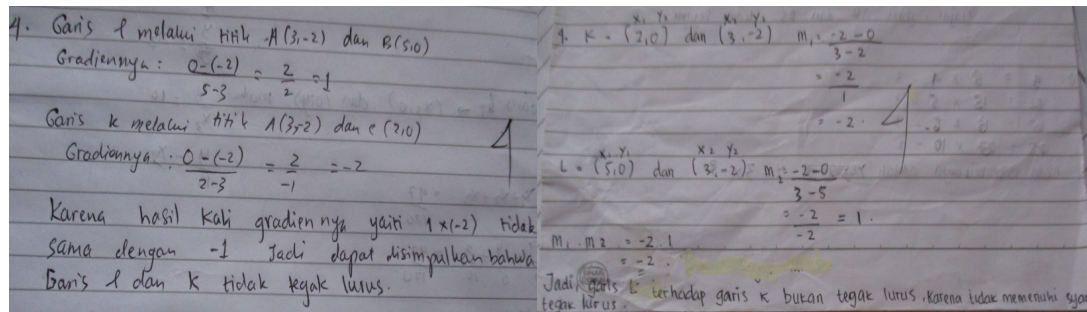 4. Garis l melalui titik A(3,-2) dan B(5,0)
Gradiennya : 0-(-2) / 5-3 = 2/2 = 1
Garis k melalui titik A(3,-2) dan c (2,0)
Gradiennya : 0-(-2) / 2-3 = 2/-1 = -2
4
Karena hasil kali gradiennya yaiti 1x(-2) tidak
sama dengan -1 Jadi dapat disimpulkan bahwa
Garis l dan k tidak tegak lurus.
x1 y1 x2 y2
4. K = (2,0) dan (3,-2) m1 = -2-0 / 3-2
= -2/1
= -2.
4
x1 y1 x2 y2
L = (5,0) dan (3,-2) m2 = -2-0 / 3-5
= -2/-2 = 1.
m1 . m2 = -2.1
= -2.
Jadi, garis L terhadap garis k bukan tegak lurus. Karena tidak memenuhi syar
tegak lurus.